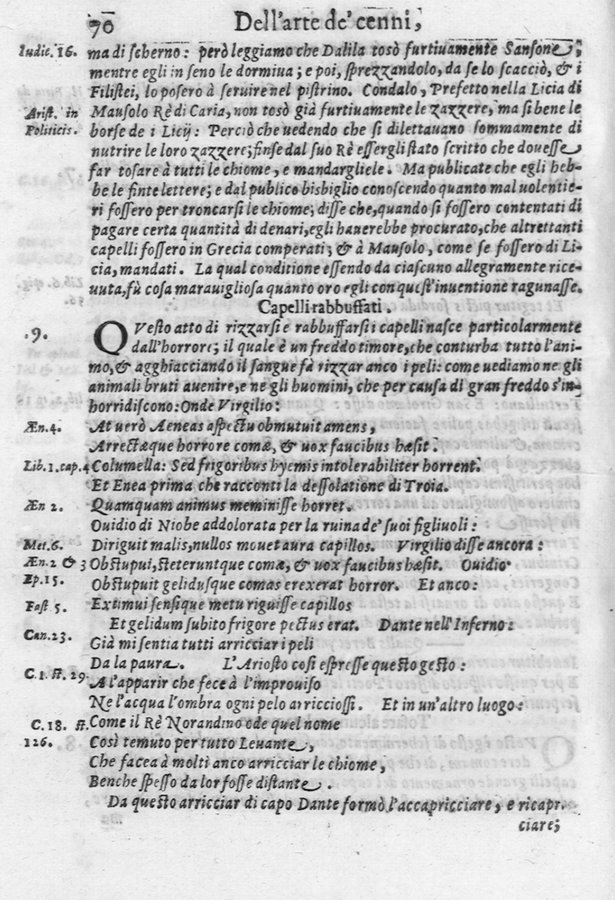 70 Dell'arte de' cenni,
Iudic. 16. ma di scherno: però leggiamo che Dalila tosò furtiuamente Sansone,
mentre egli in seno le dormina; e poi, sprezzandolo, da se lo scacciò, & i
Filistei, lo posero à seruire nel pistrino. Condalo, Prefetto nella Licia di
Arist. in Mausolo Rè di Caria, non tosò già furtiuamente le zazzere, ma si bene le
Politicis. borse de i Licij: Perciò che uedendo che si dilettauano sommamente di
nutrire le loro zazzere; finse dal suo Rè essergli stato scritto che douesse
far tosare à tutti le chiome, e mandargliele. Ma publicate che egli heb-
be le finte lettere; e dal publico bisbiglio conoscendo quanto mal uolentie-
ri fossero per troncarsi le chiome; disse che, quando si fossero contentati di
pagare certa quantità di denari, egli hauerebbe procurato, che altrettanti
capelli fossero in Grecia comperati; & à Mausolo, come se fossero di Li-
cia, mandati. La qual conditione essendo da ciascuno allegramente rice-
uuta, fù cosa marauigliosa quanto oro egli con quest'inuentione ragunasse.
Capelli rabbuffati.
.9. QVesto atto di rizzarsi e rabbuffarsi i capelli nasce particolarmente
dall'horrore; il quale è un freddo timore, che conturba tutto l'ani-
mo, & agghiacciando il sangue fà rizzar anco i peli: come uediamo ne gli
animali bruti auenire, e ne gli huomini, che per causa di gran freddo s'in-
horridiscono: Onde Virgilio:
Æn. 4. At uerò Aeneas aspectu obmutuit amens,
Arrectæque horrore comæ, & uox faucibus hæsit.
Lib. 1. cap. 4 Columella: Sed frigoribus hyemis intolerabiliter horrent.
Et Enea prima che racconti la dessolatione di Troia.
Æn 2. Quamquam animus meminisse horret.
Ouidio di Niobe addolorata per la ruina de' suoi figliuoli:
Met. 6. Diriguit malis, nullos mouet aura capillos. Virgilio disse ancora:
Æn. 2 & 3 Obstupui, steteruntque comæ, & uox faucibus hæsit. Ouidio
Ep. 15. Obstupuit gelidusque comas erexerat horror. Et anco:
Fast 5. Extimui sensique metu riguisse capillos
Et gelidum subito frigore pectus erat. Dante nell'Inferno:
Can. 23. Già mi sentia tutti arricciar i peli
Da la paura. L'Ariosto cosi espresse questo gesto:
C. 1. st. 29. A l'apparir che fece à l'improuiso
Ne l'acqua l'ombra ogni pelo arricciossi. Et in un'altro luogo:
C. 18. st. Come il Rè Norandino ode quel nome
126. Così temuto per tutto Leuante,
Che facea à molti anco arricciar le chiome,
Benche spesso da lor fosse distante.
Da questo arricciar di capo Dante formò l'accapricciare, e ricapr-
ciare;